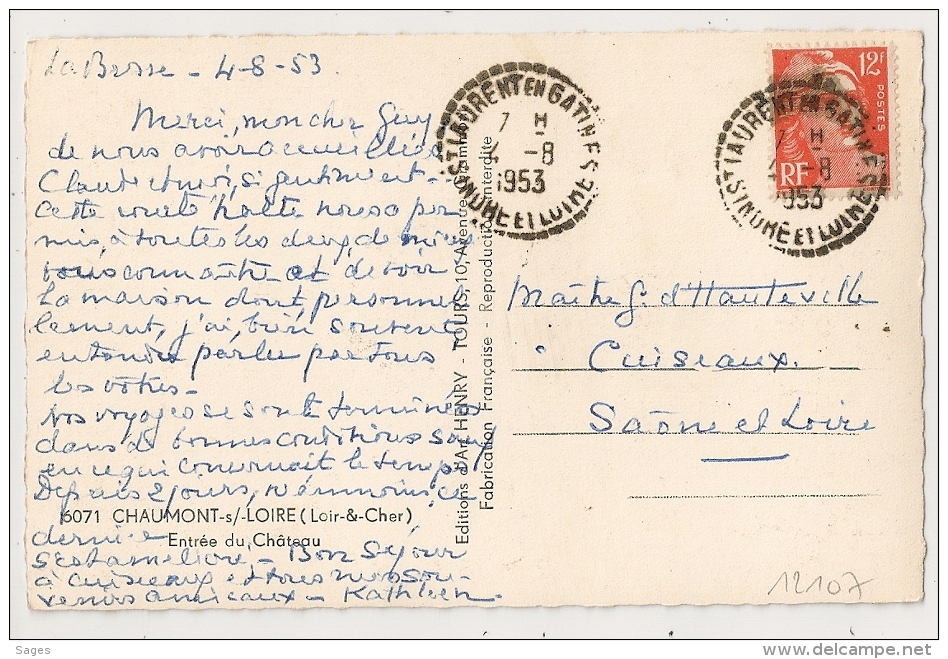 La Brosse - 4-8-53
Merci, mon cher Guy
de nous avoir accueillis
Claude et moi, si gentiment -
Cette courte halte nous a per
mis, à toutes les deux de mieux
vous connaître et de voir
la maison dont, personnel
lement, j'ai bien souvent
entendu parler par tous
les vôtres -
Nos voyages se sont terminés
dans de bonnes conditions sauf
en ce qui concernait le temps
Depuis 2 jours, néanmoins ce
dernier
s'est amélioré - Bon Séjour
à Cuiseaux et tous mes sou-
venirs amicaux - Kathleen.
6071 CHAUMONT-s/-LOIRE (Loir-&-Cher)
Entrée du Château
Editions d'Art HENRY - TOURS, 10, Avenue
Fabrication Française - Reproduction Interdite
ST LAURENT EN GATINES
7 H
4 -8
1953
INDRE ET LOIRE
12F
POSTES
RF
ST LAURENT EN GATINES
7 H
-8
1953
INDRE ET LOIRE
Maître G. d'Hauteville
Cuiseaux.
Saône et Loire
12107
Sages
http://www.delcampe.net